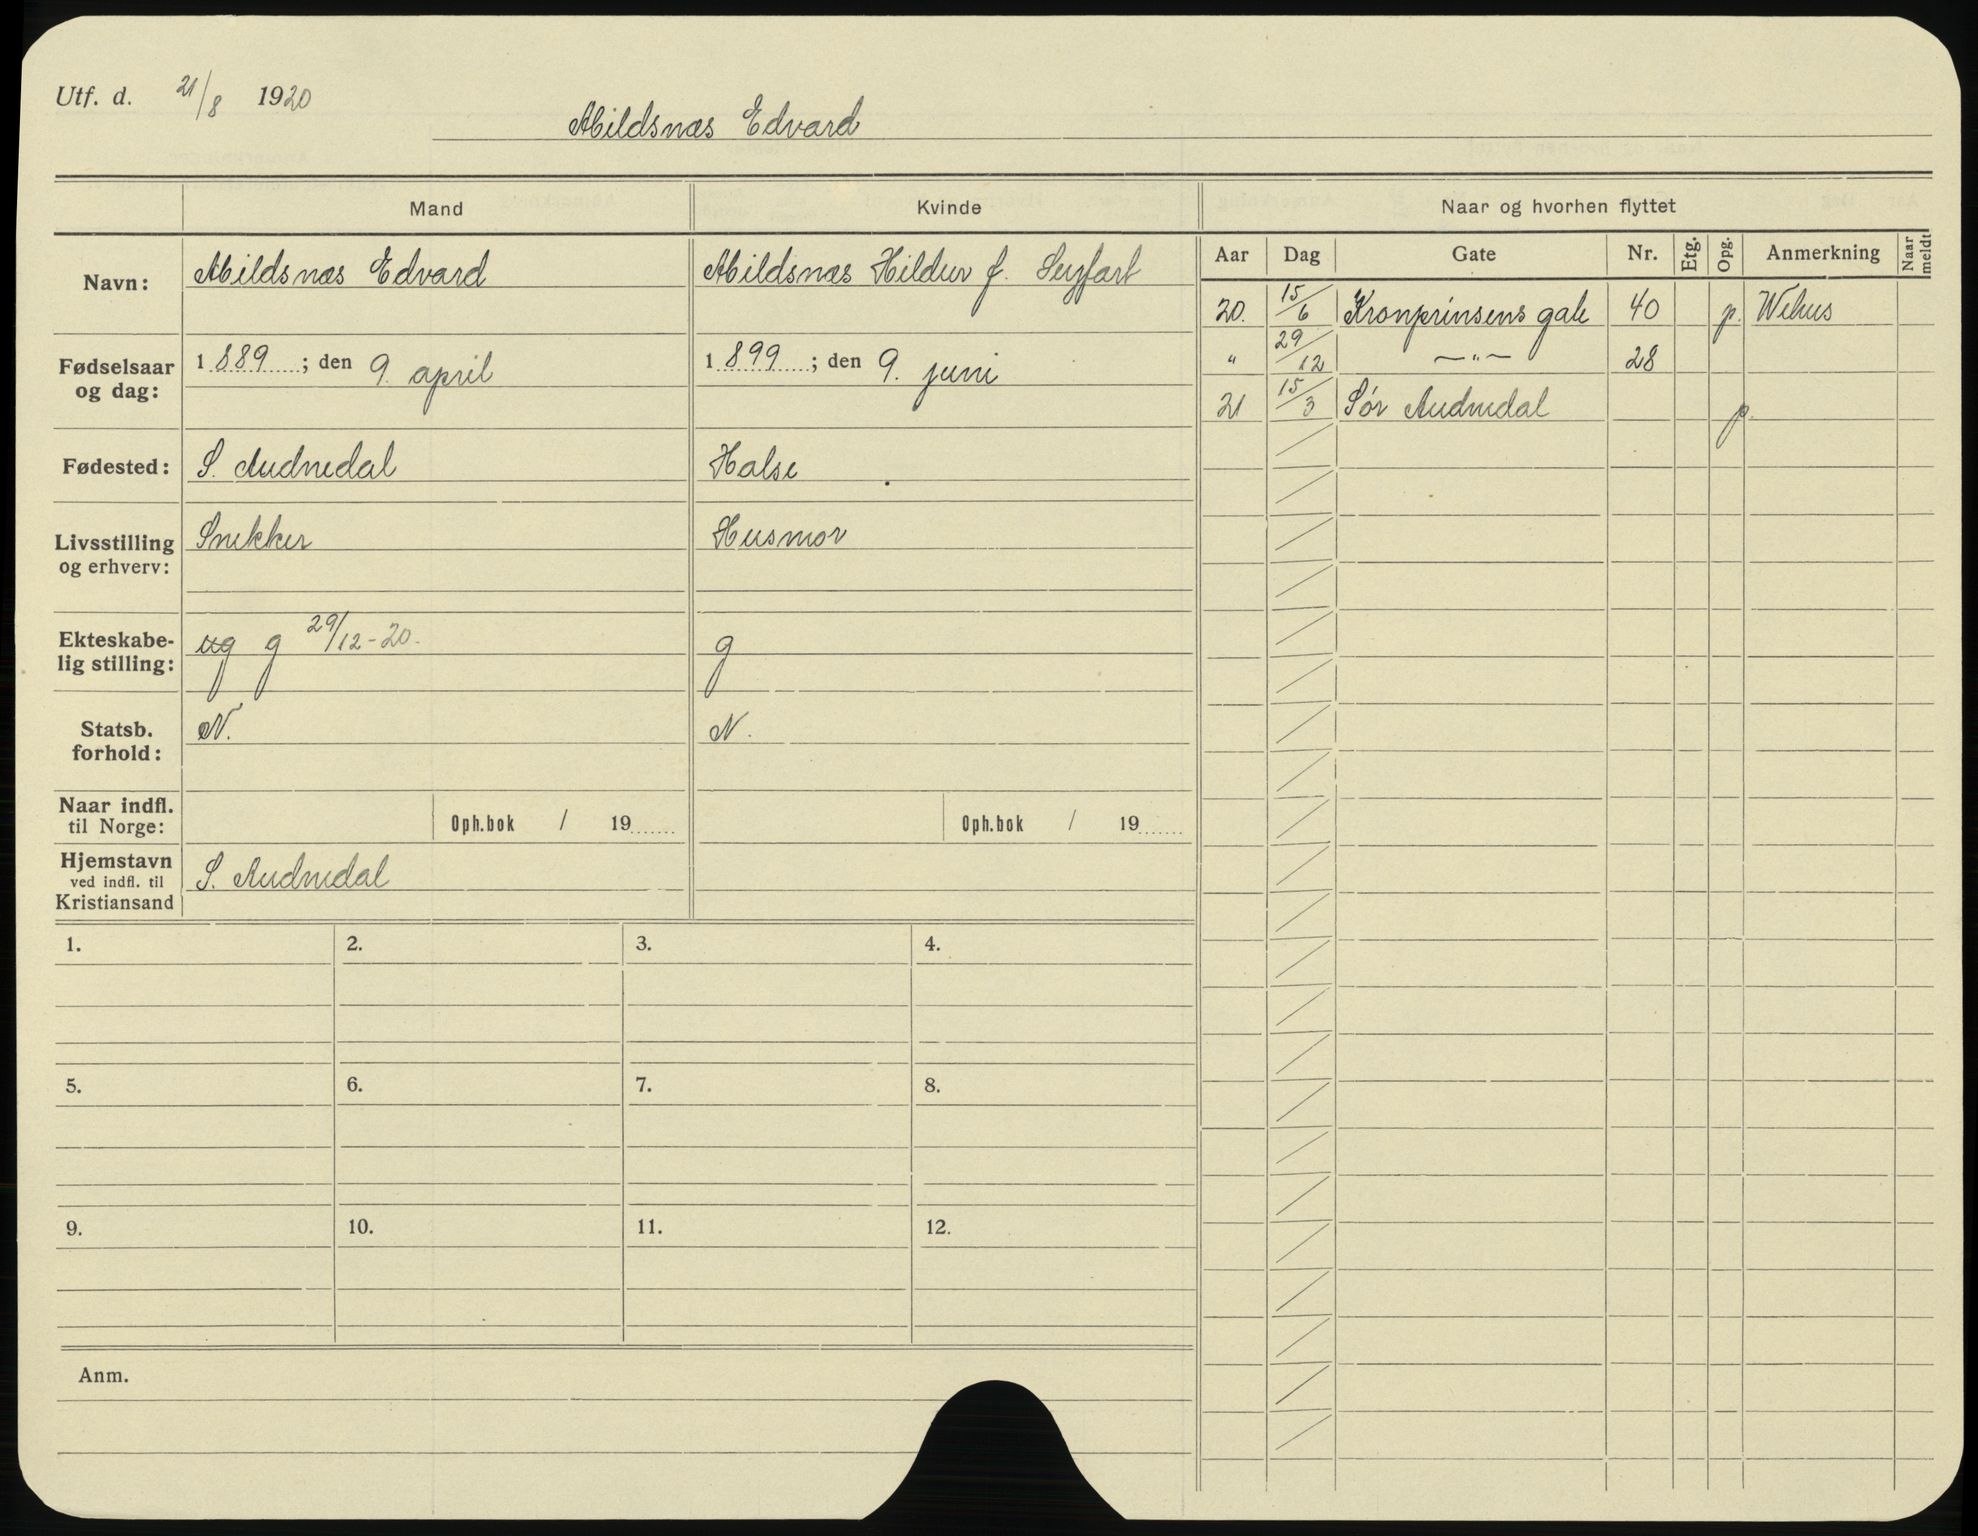 Utf. d. 21/8 1920
Abildsnæs Edvard
Mand Kvinde Naar og hvorhen flyttet
Aar Dag Gate Nr. Etg. Opg. Anmerkning Naar meldt
Navn: Abildsnæs Edvard Abildsnæs Hildur f. Seyfart
20. 15/6 Kronprinsens gate 40 p. Wehus
" 29/12 —"— 28
21 15/3 Sør Audnedal p.
Fødselsaar og dag: 1889; den 9. april 1899; den 9. juni
Fødested: S. Audnedal Halse
Livsstilling og erhverv: Snekker Husmor
Ekteskabe-
lig stilling: ug g 29/12-20. g
Statsb. forhold: N. N.
Naar indfl. til Norge: Oph.bok / 19...... Oph.bok / 19......
Hjemstavn ved indfl. til Kristiansand S. Audnedal
1. 2. 3. 4.
5. 6. 7. 8.
9. 10. 11. 12.
Anm.